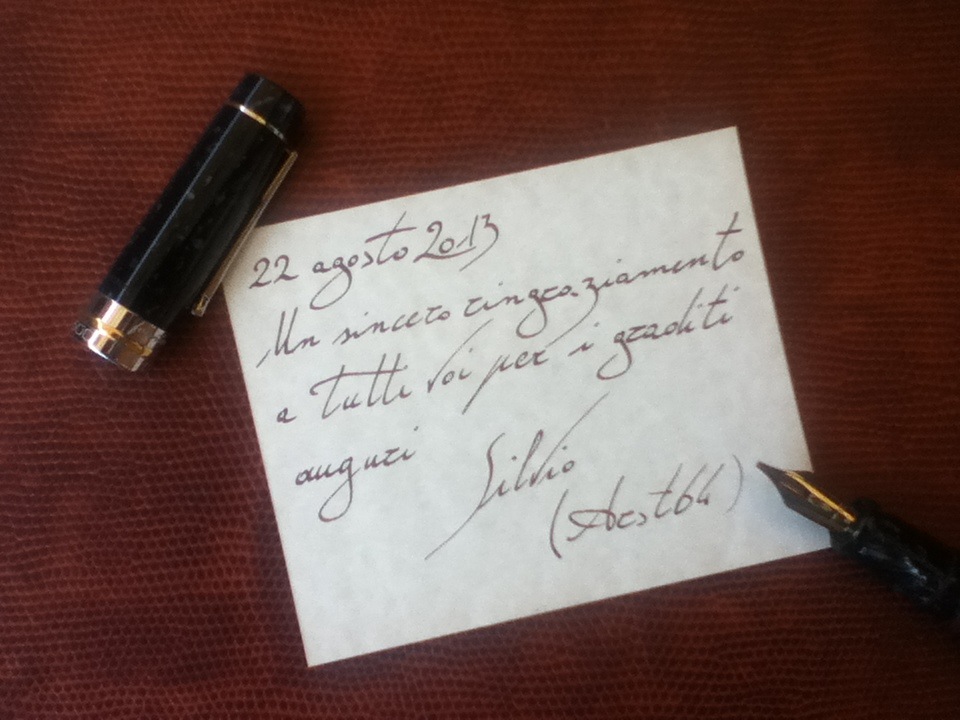 22 agosto 2013
Un sincero ringraziamento
a tutti voi per i graditi
auguri
Silvio
(Arst64)